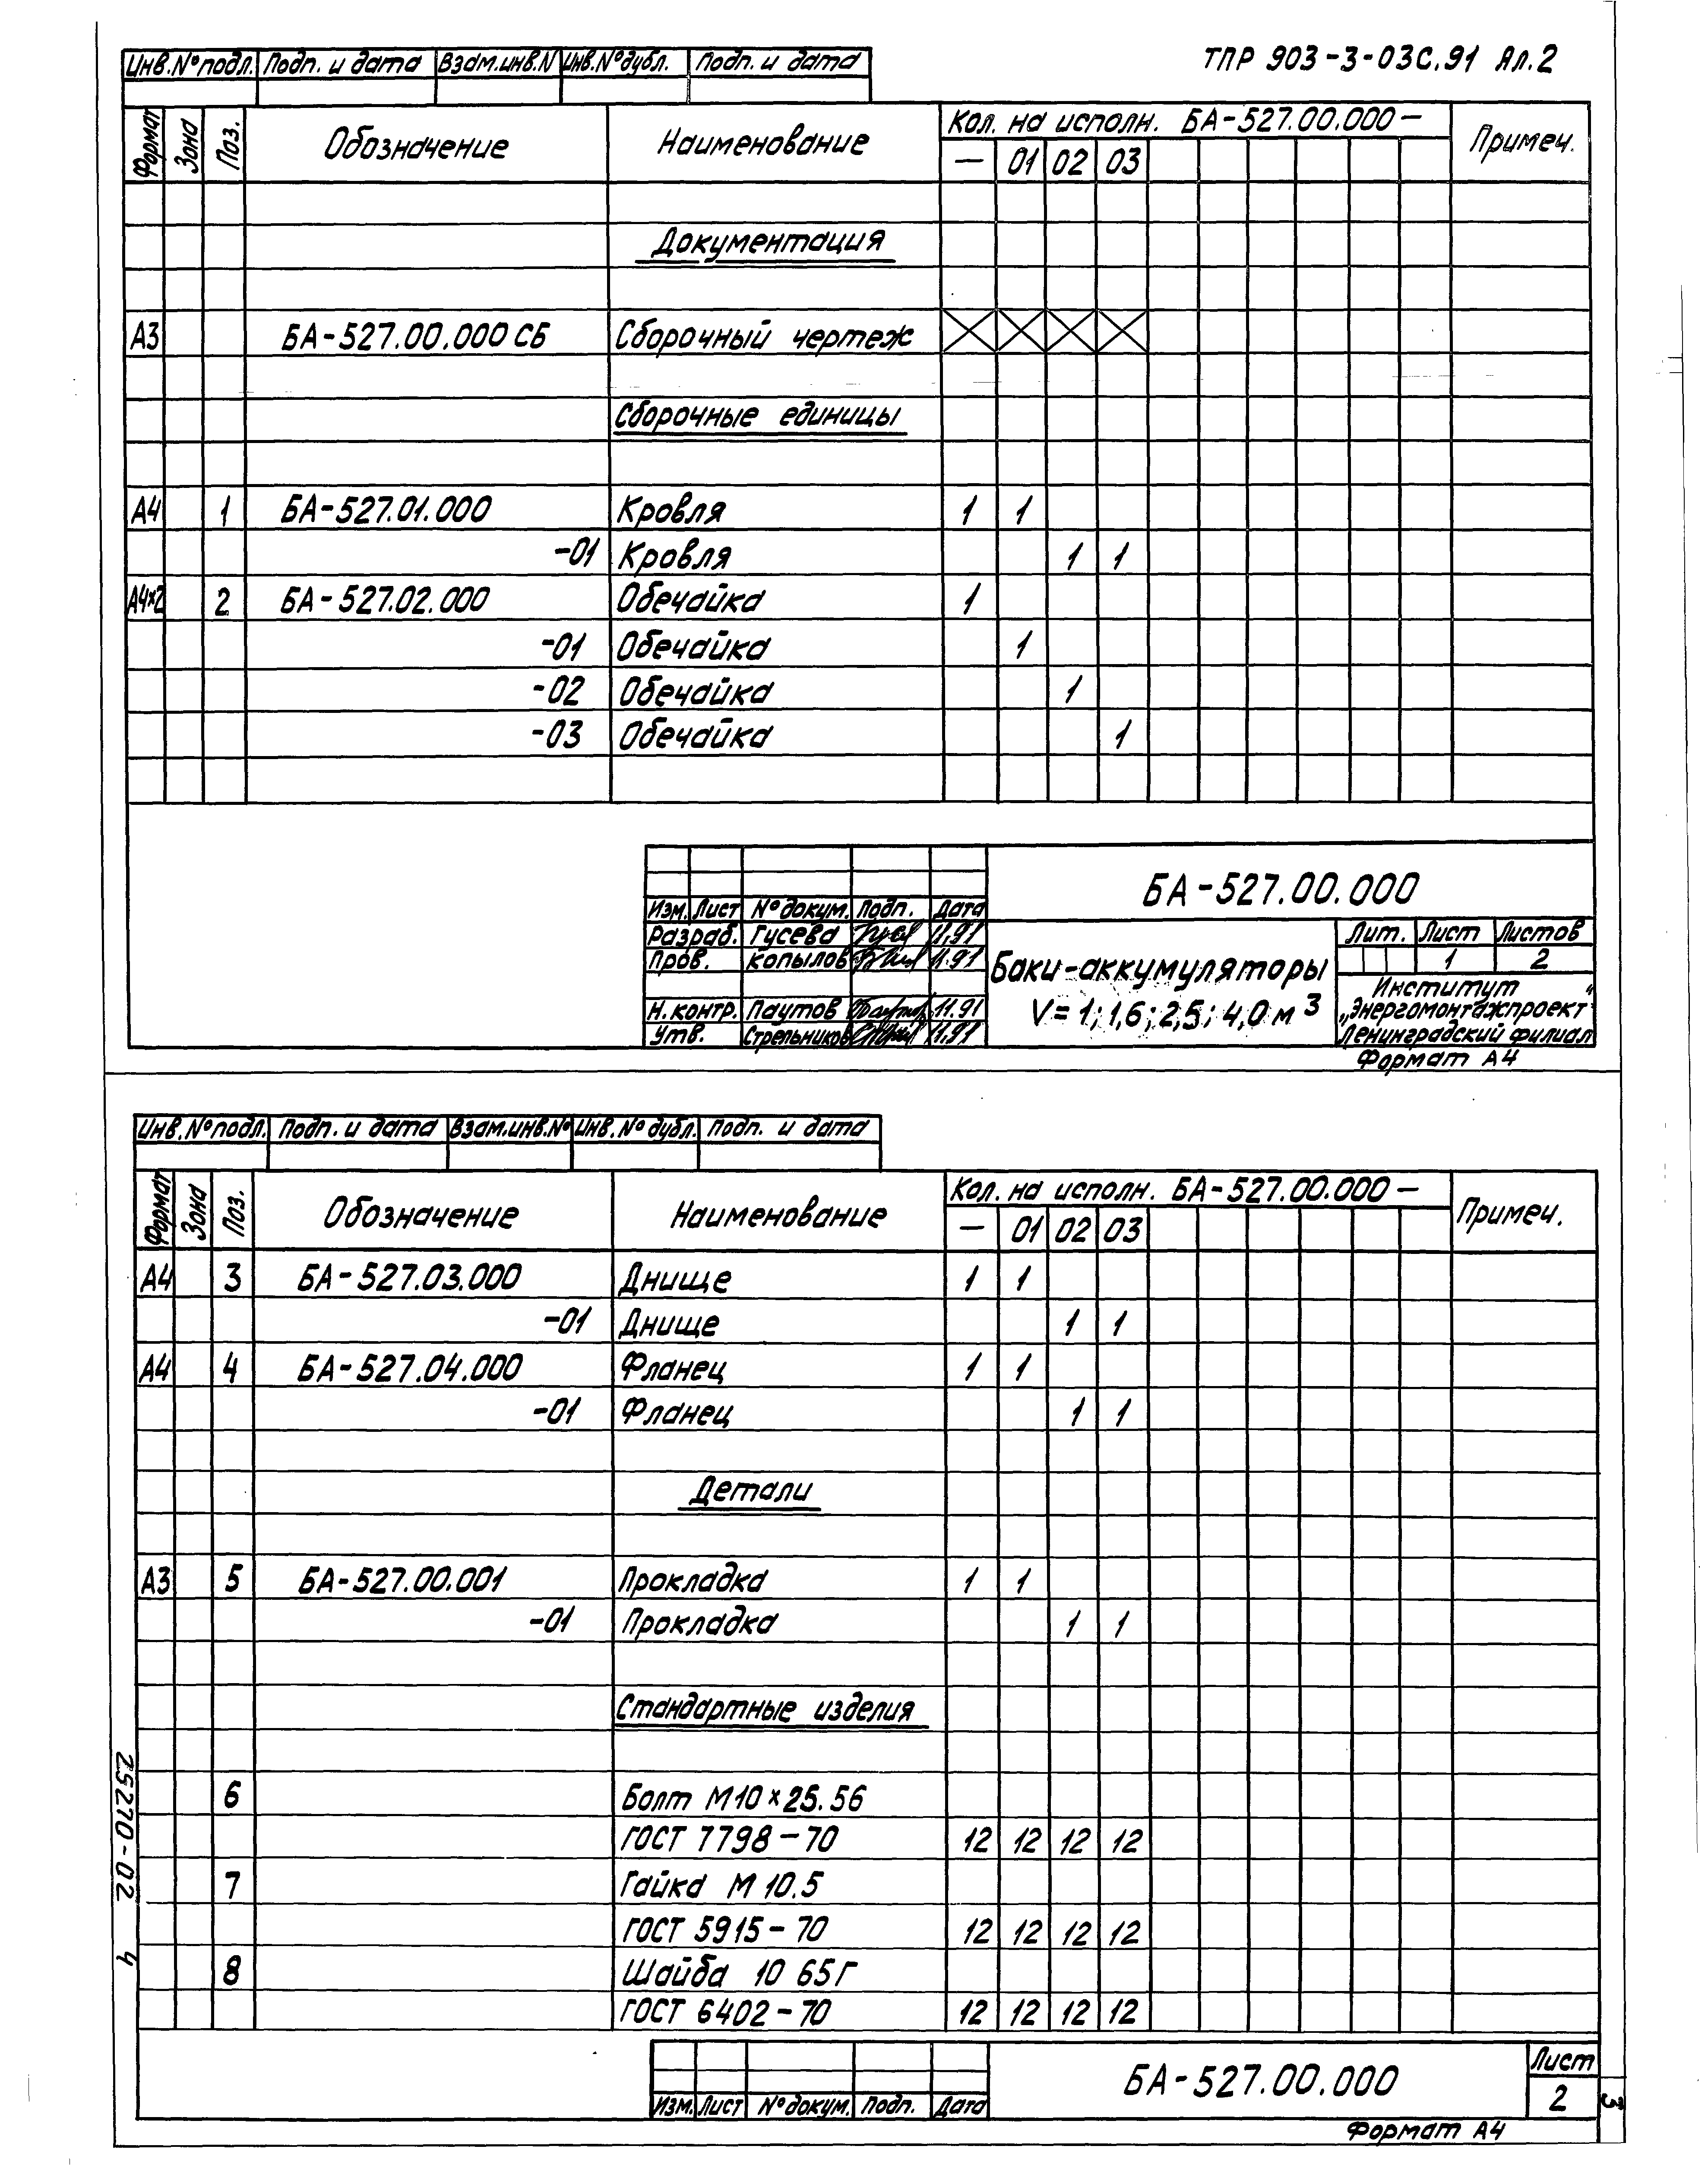 ТПР 903-3-03С.91 Ал.2
Инв.№подл. Подп. и дата Взам.инв.N Инв.№дубл. Подп. и дата
Формат Зона Поз. Обозначение Наименование Кол. на исполн. БА-527.00.000- Примеч.
— 01 02 03
Документация
А3 БА-527.00.000 СБ Сборочный чертеж
Сборочные единицы
А4 1 БА-527.01.000 Кровля 1 1
-01 Кровля 1 1
А4×2 2 БА-527.02.000 Обечайка 1
-01 Обечайка 1
-02 Обечайка 1
-03 Обечайка 1
БА-527.00.000
Изм. Лист №докум. Подп. Дата
Разраб. Гусева 11.91
Пров. Копылов 11.91
Н.контр. Паутов 11.91
Утв. Стрельников 11.91
Баки-аккумуляторы
V=1; 1,6; 2,5; 4,0 м³
Лит. Лист Листов
1 2
Институт
„Энергомонтажпроект"
Ленинградский филиал
Формат А4
Инв.№подл. Подп. и дата Взам.инв.№ Инв.№ дубл. Подп. и дата
Формат Зона Поз. Обозначение Наименование Кол. на исполн. БА-527.00.000- Примеч.
— 01 02 03
А4 3 БА-527.03.000 Днище 1 1
-01 Днище 1 1
А4 4 БА-527.04.000 Фланец 1 1
-01 Фланец 1 1
Детали
А3 5 БА-527.00.001 Прокладка 1 1
-01 Прокладка 1 1
Стандартные изделия
6 Болт М10×25.56
ГОСТ 7798-70 12 12 12 12
7 Гайка М10.5
ГОСТ 5915-70 12 12 12 12
8 Шайба 10 65Г
ГОСТ 6402-70 12 12 12 12
Изм. Лист №докум. Подп. Дата
БА-527.00.000
Лист
2
Формат А4
25270-02 4
3